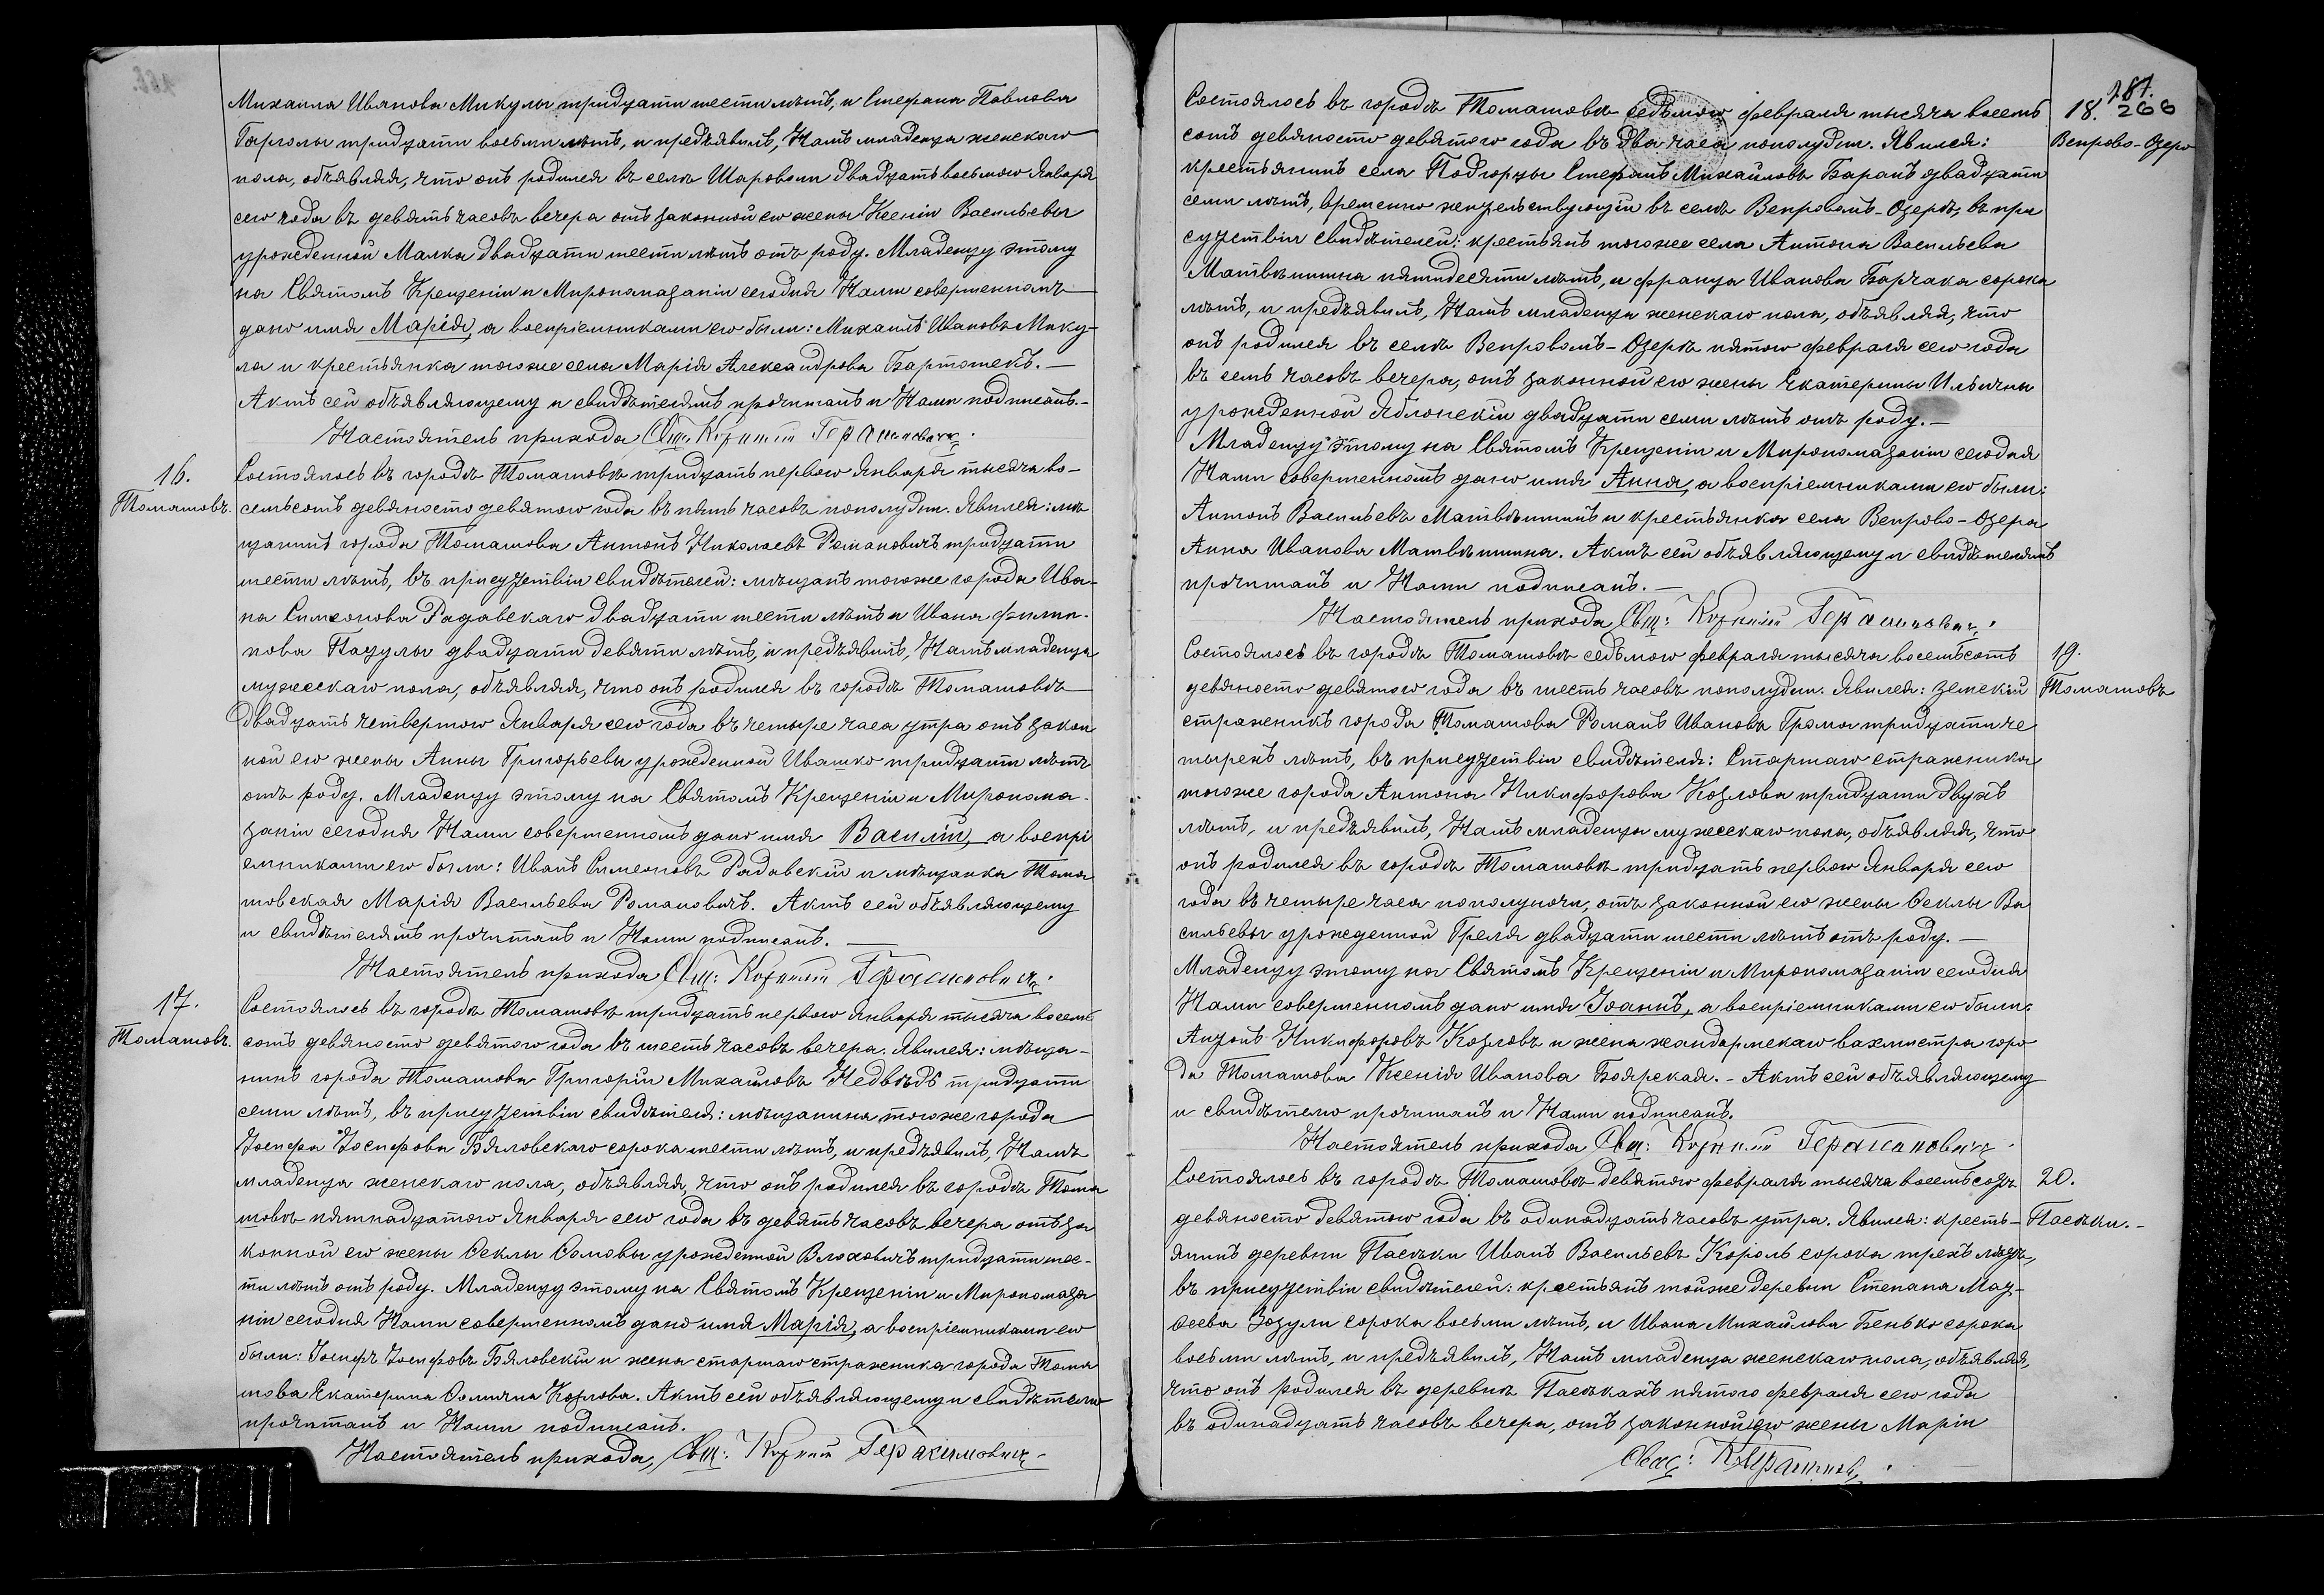 Михаила Иванова Микулы тридцати шести лѣтъ, и Стефана Павлова
Гарголы тридцати восьми лѣтъ, и предъявилъ, Намъ младенца женскаго
пола, объявляя, что онъ родился въ селѣ Шаровоми двадцать восьмого Января
сего года въ девять часовъ вечера отъ законной его жены Ксеніи Васильевы
урожденной Малка двадцати шести лѣтъ отъ роду. Младенцу этому
на Святомъ Крещеніи и Миропомазаніи сегодня Нами совершенномъ
дано имя Марія, а воспріемниками его были: Михаилъ Ивановъ Мику-
ла и крестьянка тогоже села Марія Александрова Бартошекъ. —
Актъ сей объявляющему и свидѣтелямъ прочитанъ и Нами подписанъ.-
Настоятель прихода Свщ. Корнилій Герасимовичъ.
16.
Томашовъ.
Состоялось въ городѣ Томашовѣ тридцать первого Января тысяча во-
семьсотъ девяносто девятого года въ пять часовъ пополудни. Явился: мѣ
щанинъ города Томашова Антонъ Николаевъ Романовичъ тридцати
шести лѣтъ, въ присутствіи свидѣтелей: мѣщанъ тогоже города Ива-
на Симеонова Радавскаго двадцати шести лѣтъ и Ивана Филип-
пова Пацулы двадцати девяти лѣтъ, и предъявилъ, Намъ младенца
мужескаго пола, объявляя, что онъ родился въ городѣ Томашовѣ
двадцать четвертого Января сего года въ четыре часа утра отъ закон
ной его жены Анны Григорьевы урожденной Ивашко тридцати лѣтъ
отъ роду. Младенцу этому на Святомъ Крещеніи и Миропома-
заніи сегодня Нами совершенномъ дано имя Василій, а воспрі
емниками его были: Иванъ Симеоновъ Радавскій и мѣщанка Тома
шовская Марія Васильева Романовичъ. Актъ сей объявляющему
и свидѣтелямъ прочитанъ и Нами подписанъ. —
Настоятель прихода Свщ: Корнилій Герасимовичъ.
17.
Томашовъ.
Состоялось въ городѣ Томашовѣ тридцать первого Января тысяча восемь
сотъ девяносто девятого года въ шесть часовъ вечера. Явился: мѣща-
нинъ города Томашова Григорій Михайловъ Недвѣдь тридцати
семи лѣтъ, въ присутствіи свидѣтеля: мѣщанина тогоже города
Іосифа Іосифова Бяловскаго сорока шести лѣтъ, и предъявилъ, Намъ
младенца женскаго пола, объявляя, что онъ родился въ городѣ Тома
шовѣ пятнадцатого Января сего года въ девять часовъ вечера отъ за
конной его жены Ѳеклы Ѳомовы урожденной Влоховичъ тридцати шес-
ти лѣтъ отъ роду. Младенцу этому на Святомъ Крещеніи и Миропомаза
ніи сегодня Нами совершенномъ дано имя Марія, а воспріемниками его
были: Іосифъ Іосифовъ Бяловскій и жена старшаго стражника города Тома
шова Екатерина Ѳомична Козлова. Актъ сей объявляющему и свидѣтелю
прочитанъ и Нами подписанъ.
Настоятель прихода, Свщ: Корнилій Герасимовичъ -
287.
18. 266
Вепрово-Озеро
Состоялось въ городѣ Томашовѣ седьмого февраля тысяча восемь
сотъ девяносто девятого года въ два часа пополудни. Явился:
крестьянинъ села Подгорцы Стефанъ Михайловъ Баранъ двадцати
семи лѣтъ, временно жительствующій въ селѣ Вепровомъ-Озерѣ, въ при
сутствіи свидѣтелей: крестьянъ тогоже села Антона Васильева
Матвѣишина пятидесяти лѣтъ, и Франца Иванова Барчака сорока
лѣтъ, и предъявилъ, Намъ младенца женскаго пола, объявляя, что
онъ родился въ селѣ Вепровомъ-Озерѣ пятого февраля сего года
въ семь часовъ вечера, отъ законной его жены Екатерины Ильичны
урожденной Яблонскій двадцати семи лѣтъ отъ роду. —
Младенцу этому на Святомъ Крещеніи и Миропомазаніи сегодня
Нами совершенномъ дано имя Анна, а воспріемниками его были:
Антонъ Васильевъ Матвѣишинъ и крестьянка села Вепрово-Озера
Анна Иванова Матвѣишина. Актъ сей объявляющему и свидѣтелямъ
прочитанъ и Нами подписанъ. —
Настоятель прихода Свщ: Корнилій Герасимовичъ.
19.
Томашовъ
Состоялось въ городѣ Томашовѣ седьмого февраля тысяча восемьсотъ
девяносто девятого года въ шесть часовъ пополудни. Явился: земскій
стражникъ города Томашова Романъ Ивановъ Грома тридцати че
тырехъ лѣтъ, въ присутствіи свидѣтеля: Старшаго стражника
тогоже города Антона Никифорова Козлова тридцати двухъ
лѣтъ, и предъявилъ, Намъ младенца мужескаго пола, объявляя, что
онъ родился въ городѣ Томашовѣ тридцать первого Января сего
года въ четыре часа пополуночи, отъ законной его жены Ѳеклы Ва
сильевы урожденной Греля двадцати шести лѣтъ отъ роду. —
Младенцу этому на Святомъ Крещеніи и Миропомазаніи сегодня
Нами совершенномъ дано имя Іоаннъ, а воспріемниками его были:
Антонъ Никифоровъ Козловъ и жена жандармскаго вахмистра горо
да Томашова Ксенія Иванова Боярская. - Актъ сей объявляющему
и свидѣтелю прочитанъ и Нами подписанъ.
Настоятель прихода Свщ: Корнилій Герасимовичъ.
20.
Пасѣки. -
Состоялось въ городѣ Томашовѣ девятого февраля тысяча восемьсотъ
девяносто девятого года въ одинадцать часовъ утра. Явился: кресть-
янинъ деревни Пасѣки Иванъ Васильевъ Король сорока трехъ лѣтъ,
въ присутствіи свидѣтелей: крестьянъ тойже деревни Степана Маѳ-
ѳеева Зозули сорока восьми лѣтъ, и Ивана Михайлова Бенько сорока
восьми лѣтъ, и предъявилъ, Намъ младенца женскаго пола, объявляя,
что онъ родился въ деревнѣ Пасѣкахъ пятого февраля сего года
въ одинадцать часовъ вечера, отъ законной его жены Маріи
Свщ: К. Герасимовичъ.